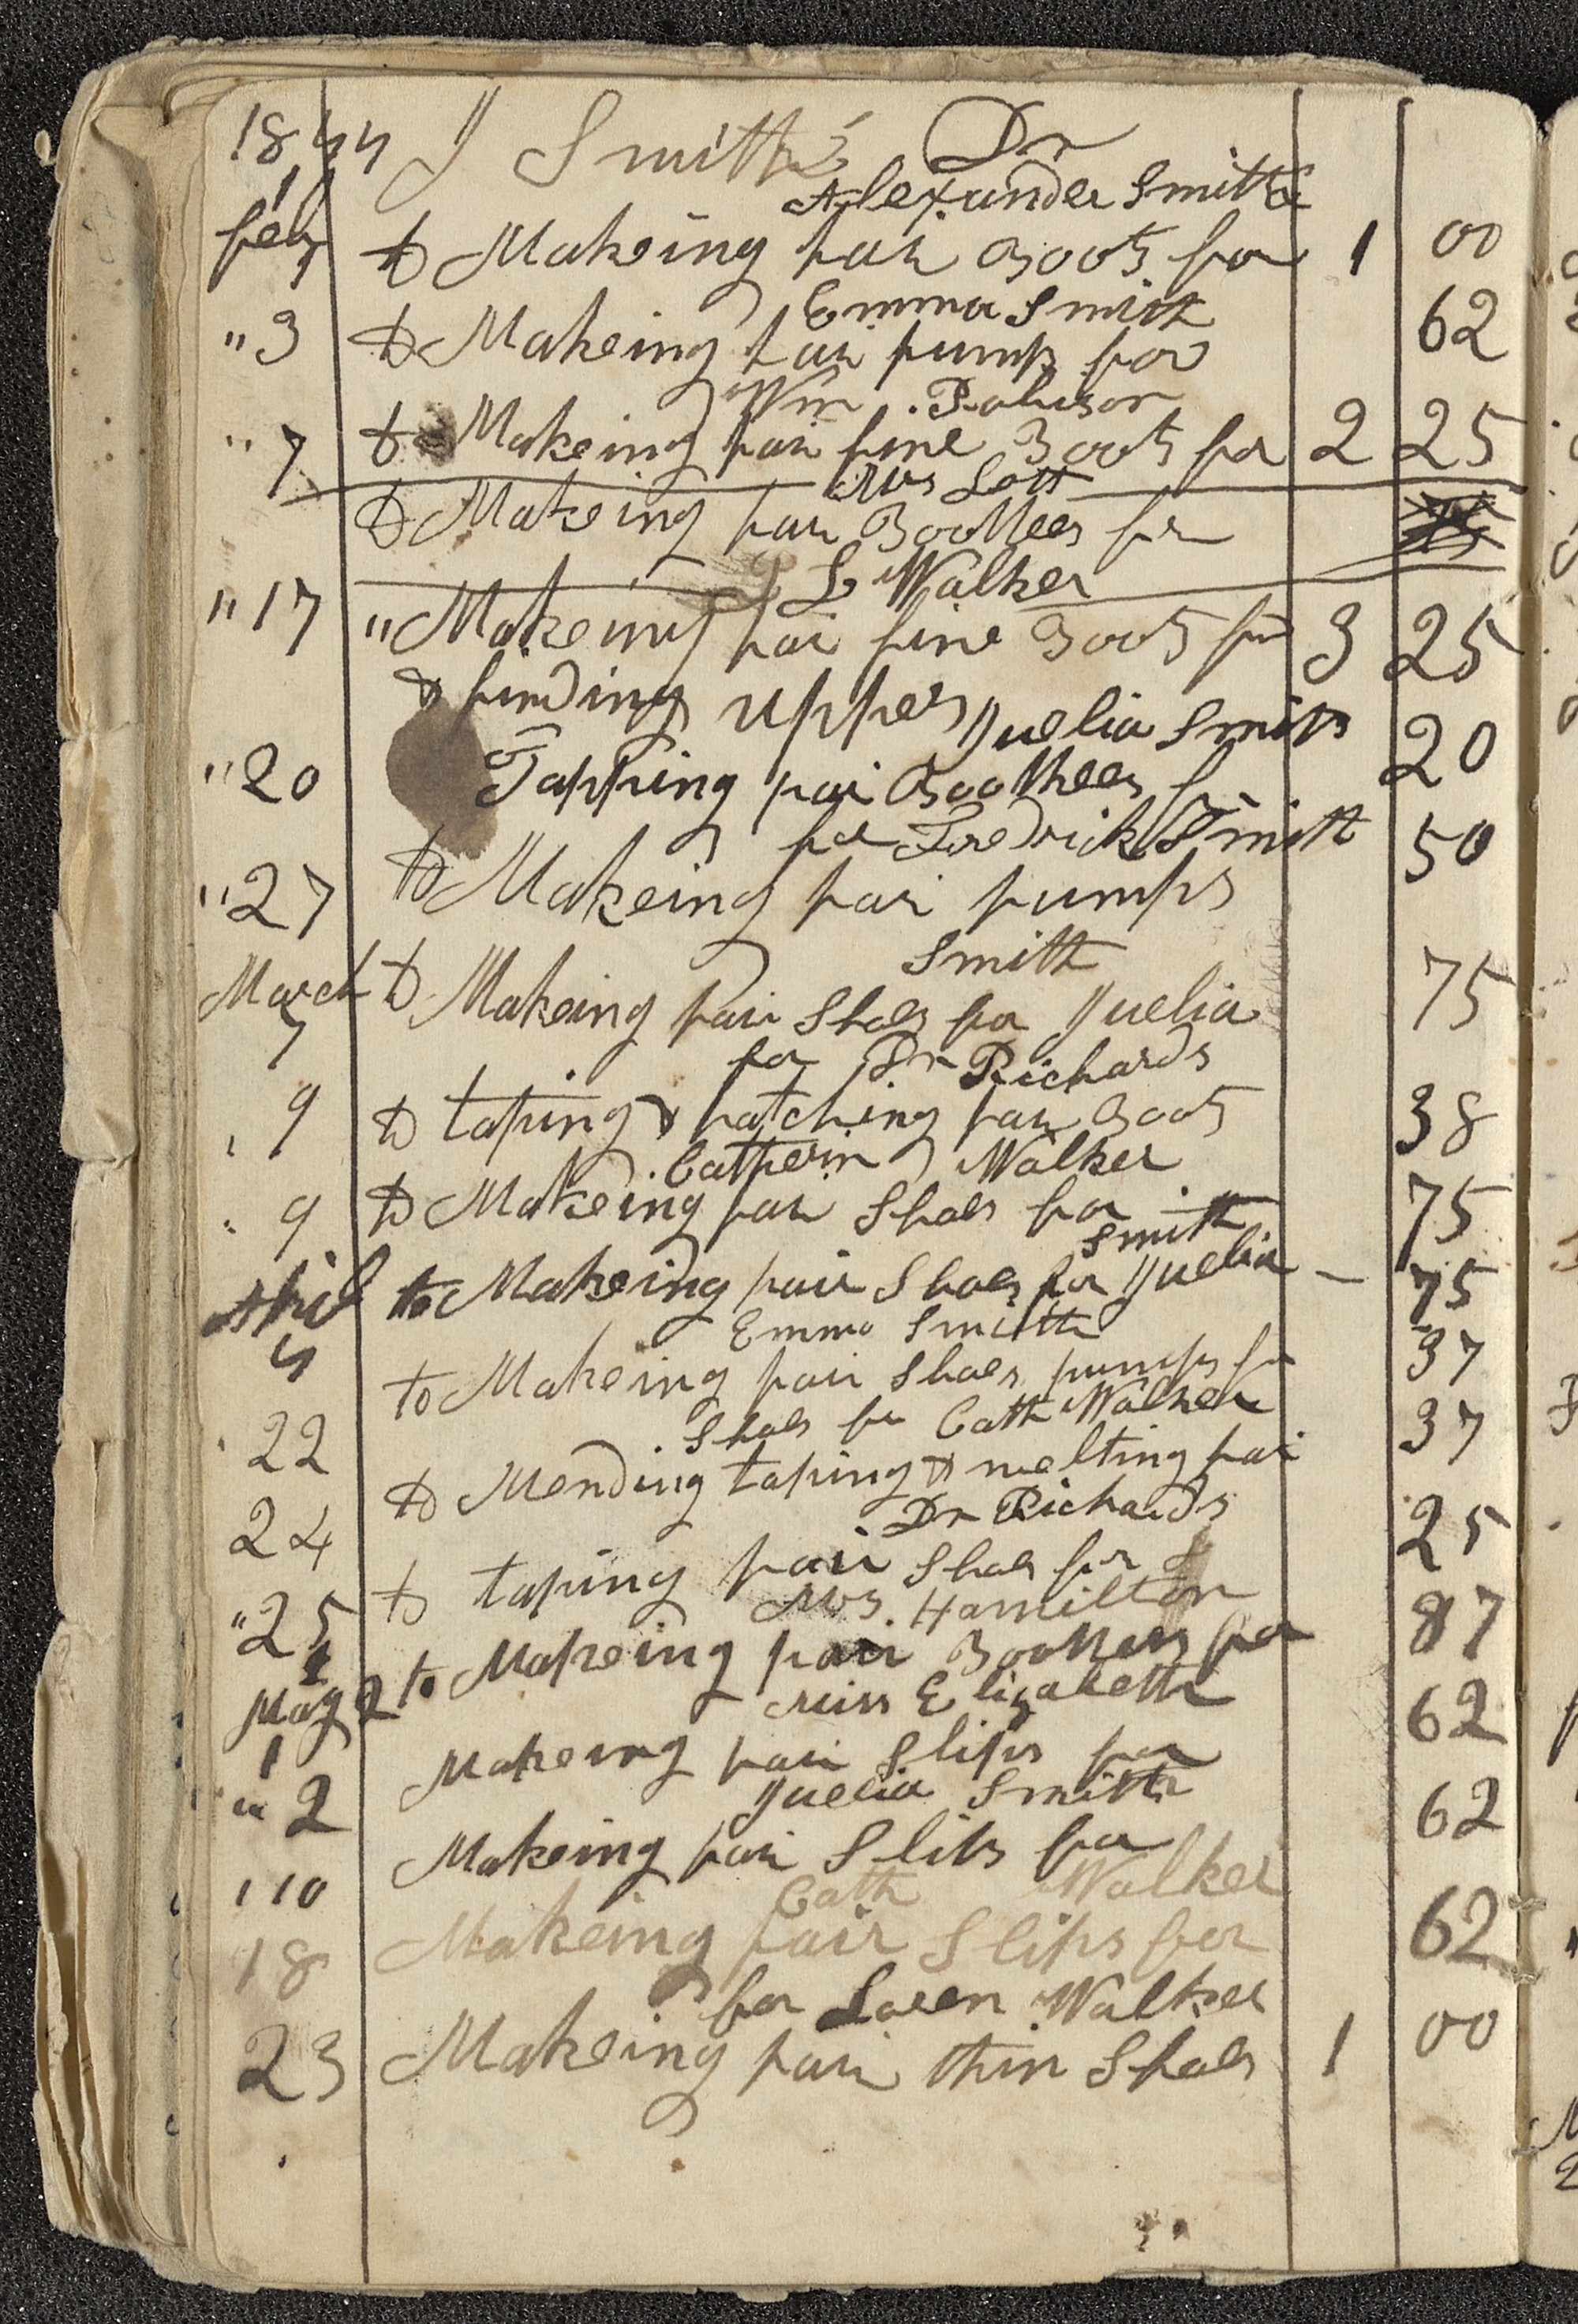 1844 J Smith's Dr
Alexander Smith
feb 1 to Makeing pair Boots for 1 00
Emma Smith
" 3 to Makeing pair pumps for 62
Wm. Robison
" 7 to Makeing pair fine Boots for 2 25
Mrs Lott
to Makeing pair Boottees for
L Walker
" 17 " Makeing pair fine Boots for 3 25
& finding uppers
Juelia Smith
" 20 Tapping pair Boottees for 20
for Fredrick Smith
" 27 to Makeing pair pumps 50
Smith
March 7 to Makeing pair Shoes for Juelia 75
for Dr Richards
" 9 to taping & patching pair Boots 38
Catherin Walker
" 9 to Makeing pair Shoes for 75
Smith
April 4 to Makeing pair Shoes for Juelia – 75
Emma Smith
22 to Makeing pair Shoes pumps for 37
Shoes for Cath Walker
24 to Mending taping & welting pair 37
Dr Richards
" 25 to taping pair Shoes for 25
Mrs. Hamilton
May 1 to Makeing pair Boottees for 87
Miss Elizabeth
" 2 Makeing pair Slips for 62
Juelia Smith
" 10 Makeing pair Slips for 62
Cath Walker
18 Makeing pair Slips for 62
for Loren Walker
23 Makeing pair thin Shoes 1 00